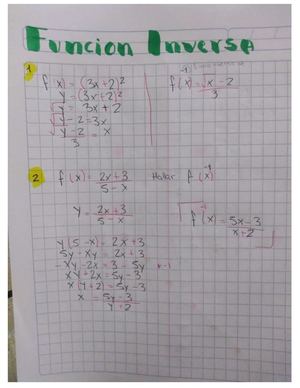 Funcion Inversa
1
f(x) = (3x+2)²
y = (3x+2)²
√y = 3x+2
√y-2 = 3x
√y-2/3 = x
f⁻¹(x) = √x-2/3
2
f(x) = 2x+3/5-x Hallar f⁻¹(x)
y = 2x+3/5-x
f⁻¹(x) = 5x-3/x+2
y(5-x) = 2x+3
5y-xy = 2x+3
-xy-2x = 3-5y x-1
xy+2x = 5y-3
x(y+2) = 5y-3
x = 5y-3/y+2